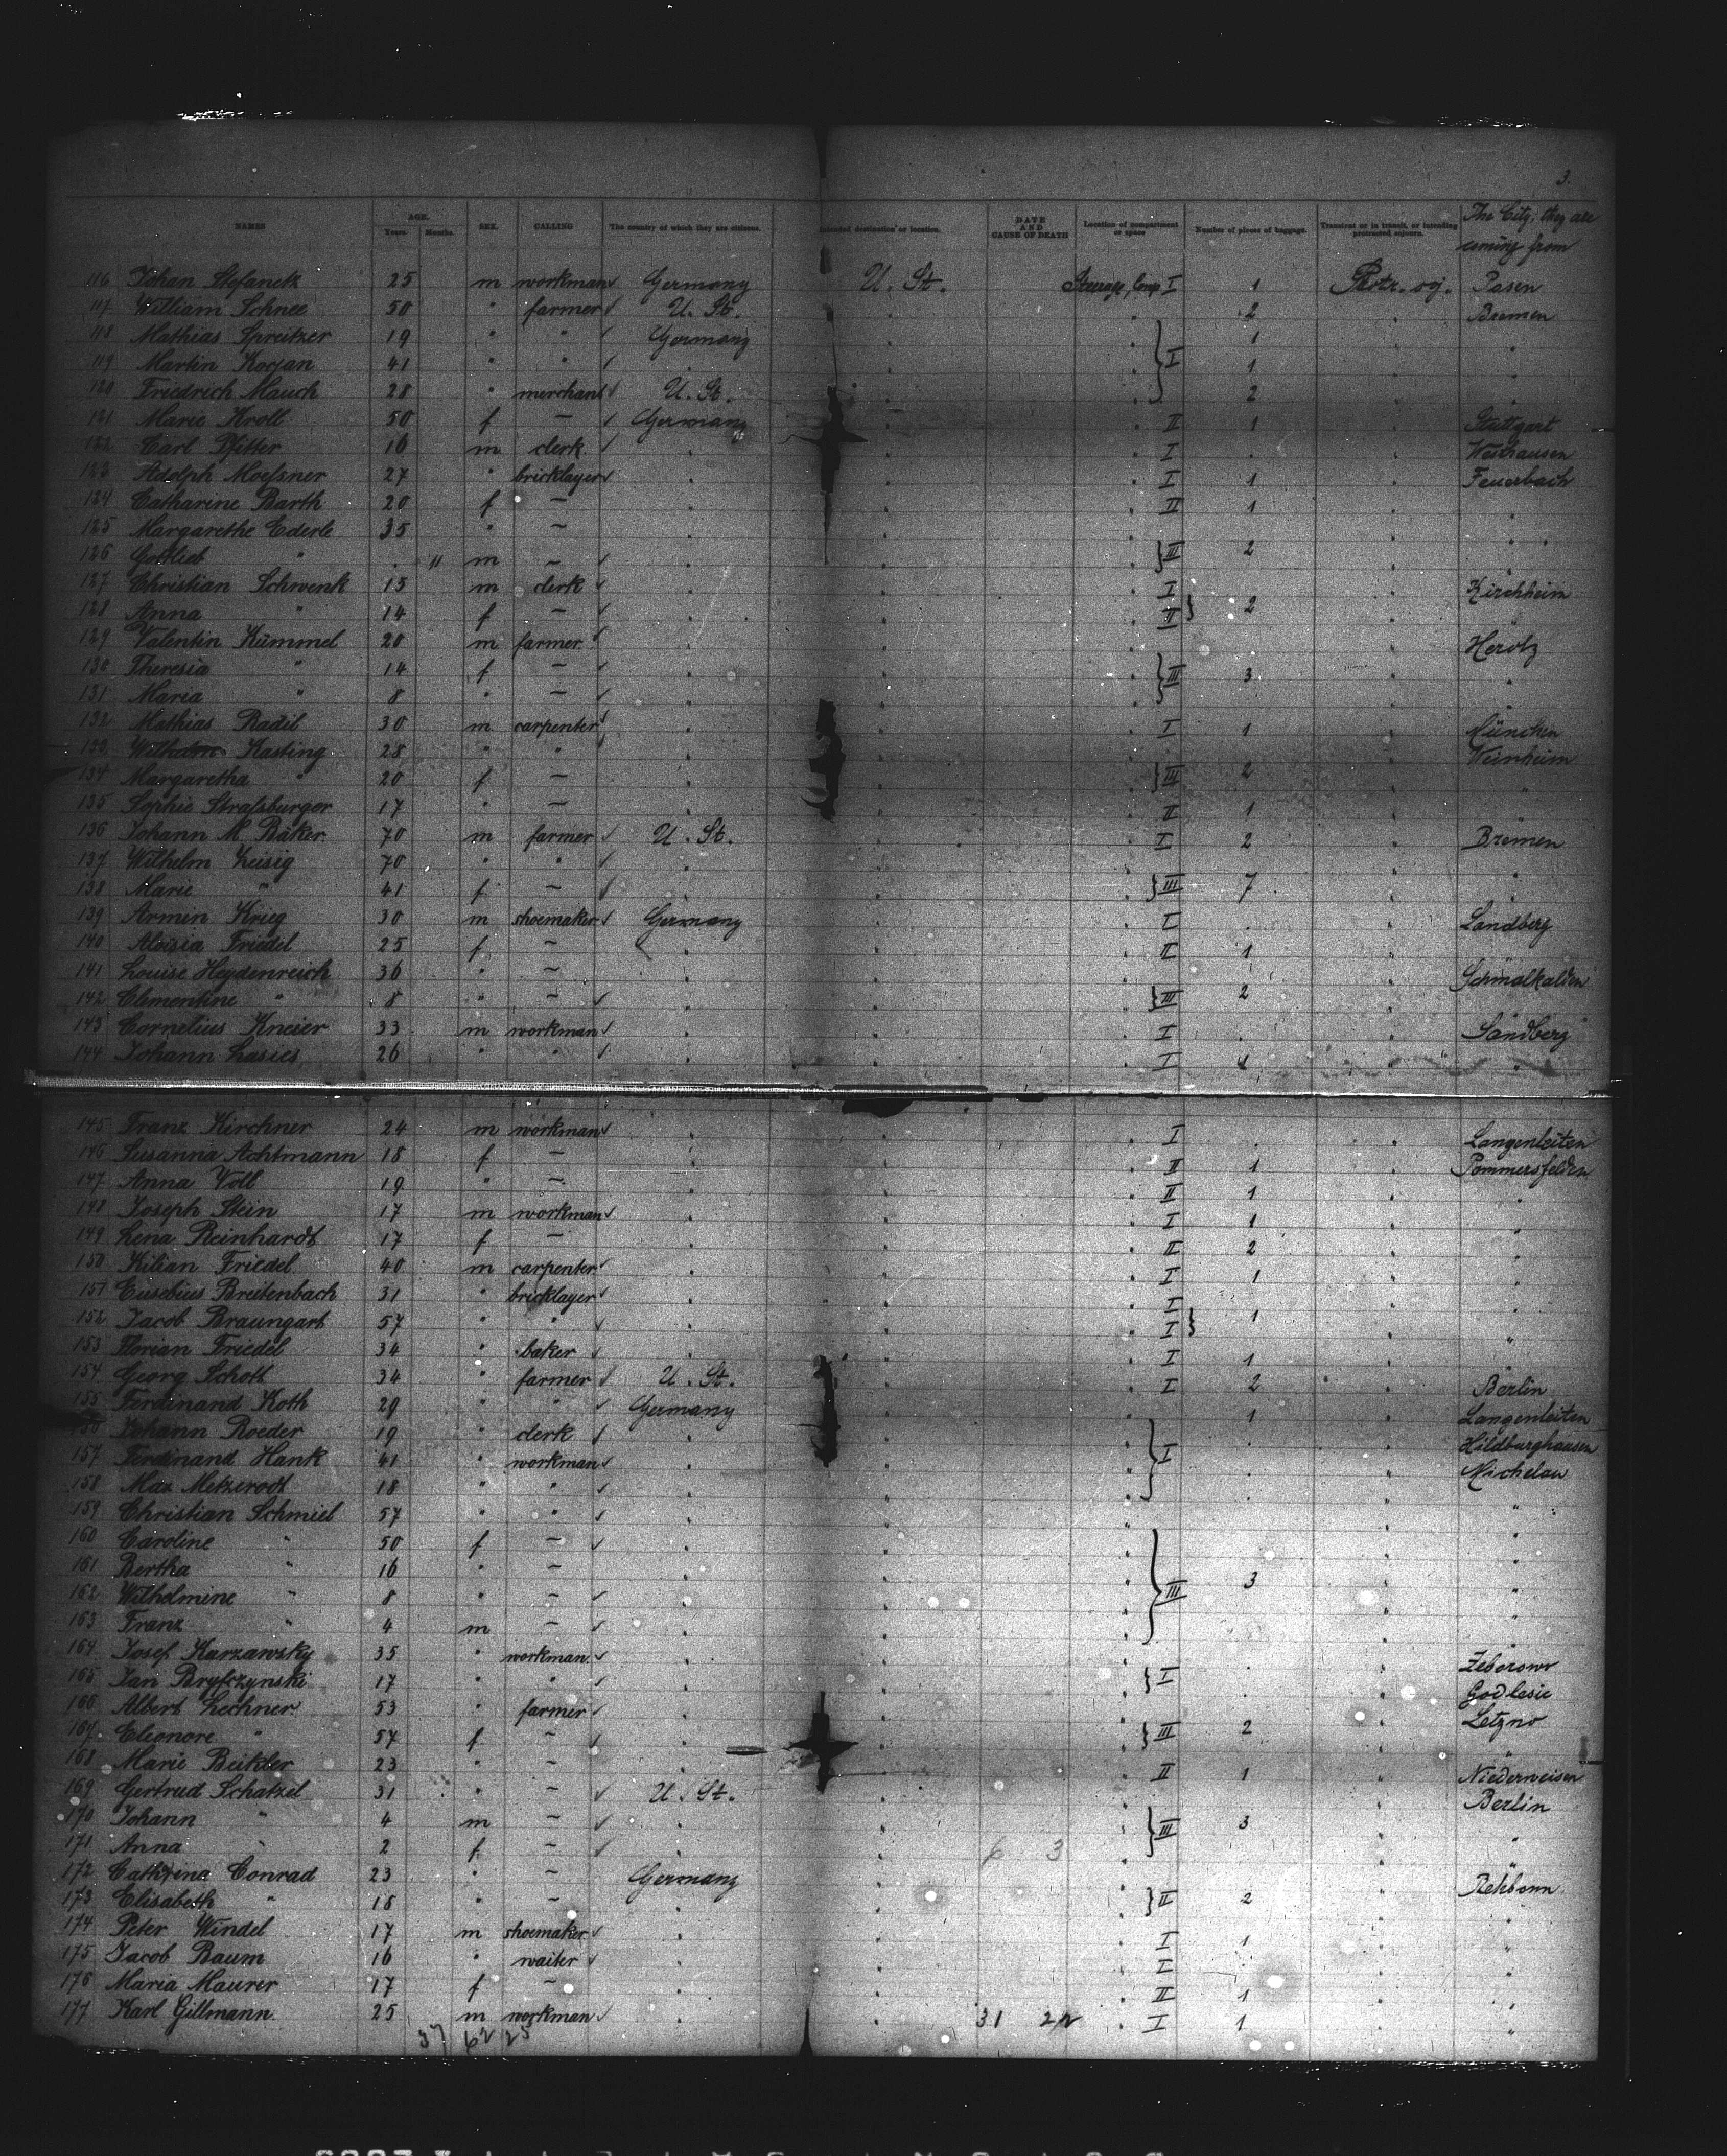 3.
NAMES AGE. Years. Months. SEX. CALLING The country of which they are citizens. Intended destination or location. DATE AND CAUSE OF DEATH Location of compartment or space Number of pieces of baggage. Transient or in transit, or intending protracted sojourn. The City, they are coming from
116 Johan Stefaneck 25 m workman Germany U. St. Steerage, Comp I 1 Protr. soj. Posen
117 William Schnee 50 " farmer U. St. " " 2 " Bremen
118 Mathias Spreitzer 19 " " Germany " " 1 " "
119 Martin Korjan 41 " " " " " I 1 " "
120 Friedrich Mauch 28 " merchant U. St. " " 2 " "
121 Marie Kroll 50 f – Germany " " II 1 " Stuttgart
122 Carl Pfitter 16 m clerk " " " I . " Westhausen
123 Adolph Moessner 27 " bricklayer " " " I 1 " Feuerbach
124 Catharine Barth 20 f – " " " II 1 " "
125 Margarethe Ederle 35 " – " " " " "
126 Gottlieb " . 11 m – " " " III 2 " "
127 Christian Schwenk 15 m clerk " " " I " Kirchheim
128 Anna " 14 f – " " " II 2 " "
129 Valentin Kümmel 20 m farmer " " " " Herolz
130 Theresia " 14 f – " " " III 3 " "
131 Maria " 8 " – " " " " "
132 Mathias Radil 30 m carpenter " " " I 1 " München
133 Wilhelm Kasting 28 " " " " " " Weinheim
134 Margaretha " 20 f – " " " III 2 " "
135 Sophie Strassburger 17 " – " " " II 1 " "
136 Johann M. Bäker 70 m farmer U. St. " " I 2 " Bremen
137 Wilhelm Leisig 70 " " " " " " "
138 Marie " 41 f – " " " III 7 " "
139 Armen Krieg 30 m shoemaker Germany " " I . " Sandberg
140 Aloisia Friedel 25 f – " " " II 1 " "
141 Louise Heydenreich 36 " – " " " " Schmalkalden
142 Clementine " 8 " – " " " III 2 " "
143 Cornelius Kneier 33 m workman " " " I . " Sandberg
144 Johann Lasics 26 " " " " " I 1 " "
145 Franz Kirchner 24 m workman " " " I . " Langenleiten
146 Susanna Achtmann 18 f – " " " II 1 " Pommersfelden
147 Anna Voll 19 " – " " " II 1 " "
148 Joseph Stein 17 m workman " " " I 1 " "
149 Lena Reinhardt 17 f – " " " II 2 " "
150 Kilian Friedel 40 m carpenter " " " I 1 " "
151 Eusebius Breitenbach 31 " bricklayer " " " I " "
152 Jacob Braungart 57 " " " " " I 1 " "
153 Florian Friedel 34 " baker " " " I 1 " "
154 Georg Schott 34 " farmer U. St. " " I 2 " Berlin
155 Ferdinand Koth 29 " " Germany " " 1 " Langenleiten
156 Johann Roeder 19 " clerk " " " I . " Hildburghausen
157 Ferdinand Hank 41 " workman " " " . " Michelau
158 Max Metzerodt 18 " " " " " . " "
159 Christian Schmiel 57 " " " " " " "
160 Caroline " 50 f – " " " " "
161 Bertha " 16 " – " " " III 3 " "
162 Wilhelmine " 8 " – " " " " "
163 Franz " 4 m – " " " " "
164 Josef Karzawsky 35 " workman " " " I . " Zeborowo
165 Jan Bryszynski 17 " " " " " . " Godlesie
166 Albert Lechner 53 " farmer " " " " Letzno
167 Eleonore " 57 f – " " " III 2 " "
168 Marie Beikler 23 " – " " " II 1 " Niederweisen
169 Gertrud Schatzel 31 " – U. St. " " " Berlin
170 Johann " 4 m – " " " III 3 " "
171 Anna " 2 f – " " 6 3 " " "
172 Cathrena Conrad 23 " – Germany " " " Rehborn
173 Elisabeth " 18 " – " " " II 2 " "
174 Peter Windel 17 m shoemaker " " " I 1 " "
175 Jacob Baum 16 " waiter " " " I . " "
176 Maria Maurer 17 f – " " " II 1 " "
177 Karl Gillmann 25 m workman " " 31 22 " I 1 " "
37 62 25